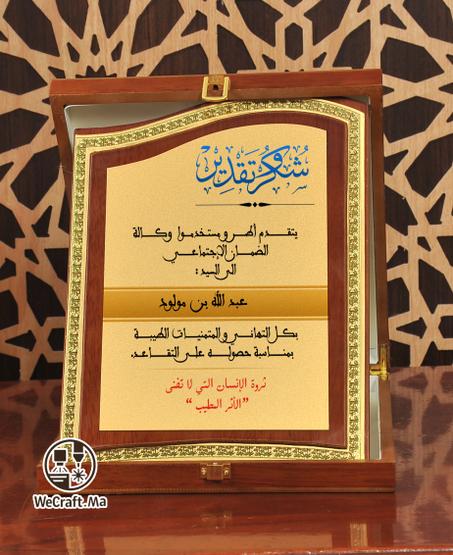 شكر وتقدير
يتقدم أطر ومستخدموا وكالة
الضمان الإجتماعي
الى السيد :
عبد الله بن مولود
بكل التهاني و المتمنيات الطيبة
بمناسبة حصوله على التقاعد.
ثروة الإنسان التي لا تفنى
”الأثر الطيب“
WeCraft.Ma